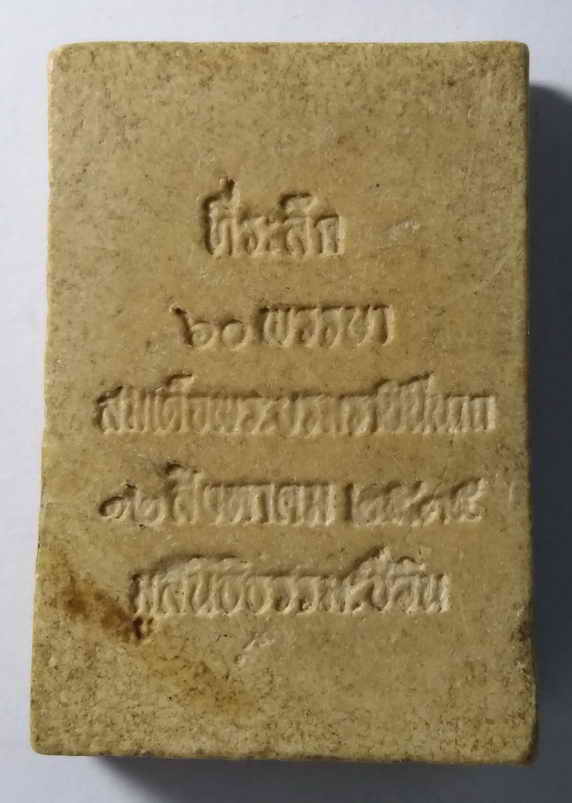 ที่ระลึก
๖๐ พรรษา
สมเด็จพระบรมราชินีนาถ
๑๒ สิงหาคม ๒๕๓๕
มูลนิธิธรรม